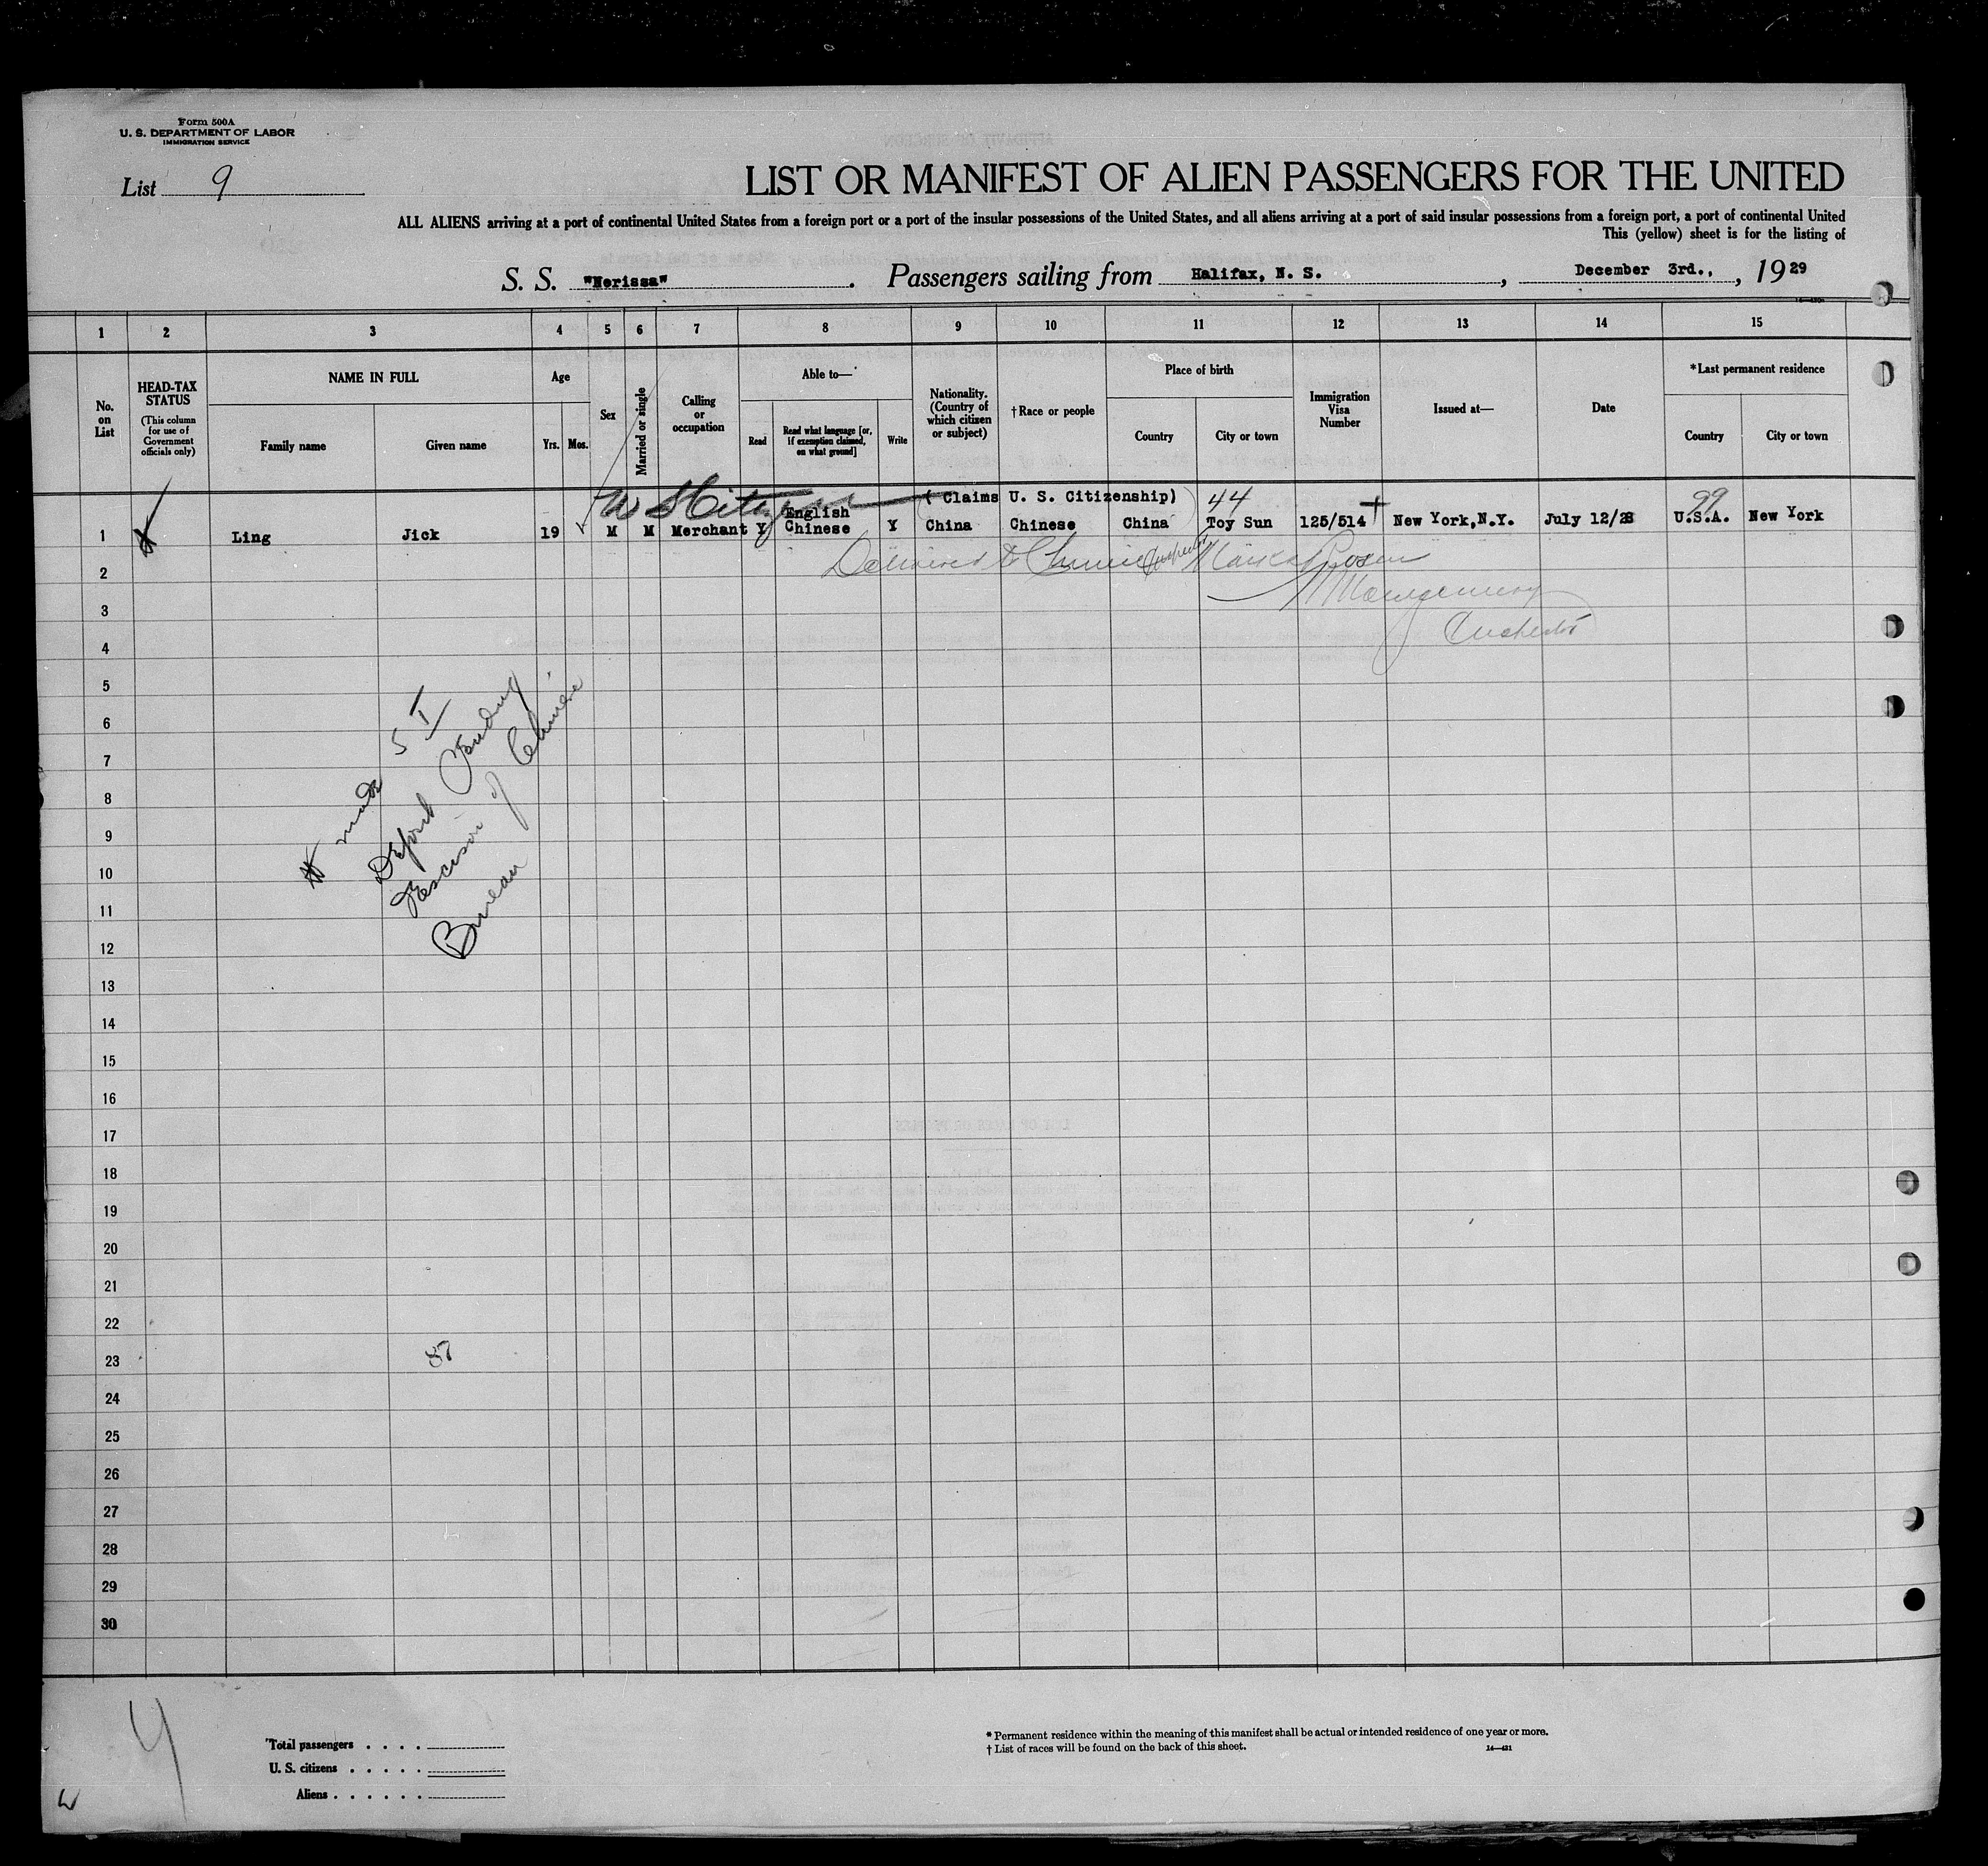 Form 500A
U. S. DEPARTMENT OF LABOR
IMMIGRATION SERVICE
List 9
LIST OR MANIFEST OF ALIEN PASSENGERS FOR THE UNITED
ALL ALIENS arriving at a port of continental United States from a foreign port or a port of the insular possessions of the United States, and all aliens arriving at a port of said insular possessions from a foreign port, a port of continental United
This (yellow) sheet is for the listing of
S. S. "Nerissa". Passengers sailing from Halifax, N. S., December 3rd., , 1929
1 2 3 4 5 6 7 8 9 10 11 12 13 14 15
No. on List
HEAD-TAX STATUS
(This column for use of Government officials only)
NAME IN FULL
Family name
Given name
Age
Yrs. Mos.
Sex
Married or single
Calling or occupation
Able to—
Read
Read what language [or, if exemption claimed, on what ground]
Write
Nationality. (Country of which citizen or subject)
† Race or people
Place of birth
Country
City or town
Immigration Visa Number
Issued at—
Date
* Last permanent residence
Country
City or town
U S Citizen (Claims U. S. Citizenship) 44 99
1 Ling Jick 19 M M Merchant Y English Chinese Y China Chinese China Toy Sun 125/514 † New York, N.Y. July 12/28 U.S.A. New York
2 Delivered to Chinese Inspector
3
4
5
6
7
8
9
10
11
12
13
14
15
16
17
18
19
20
21
22
23
24
25
26
27
28
29
30
made S I
Deport Pending
Decision of Chinese
Bureau
87
Total passengers
U. S. citizens
Aliens
* Permanent residence within the meaning of this manifest shall be actual or intended residence of one year or more.
† List of races will be found on the back of this sheet.
14—421